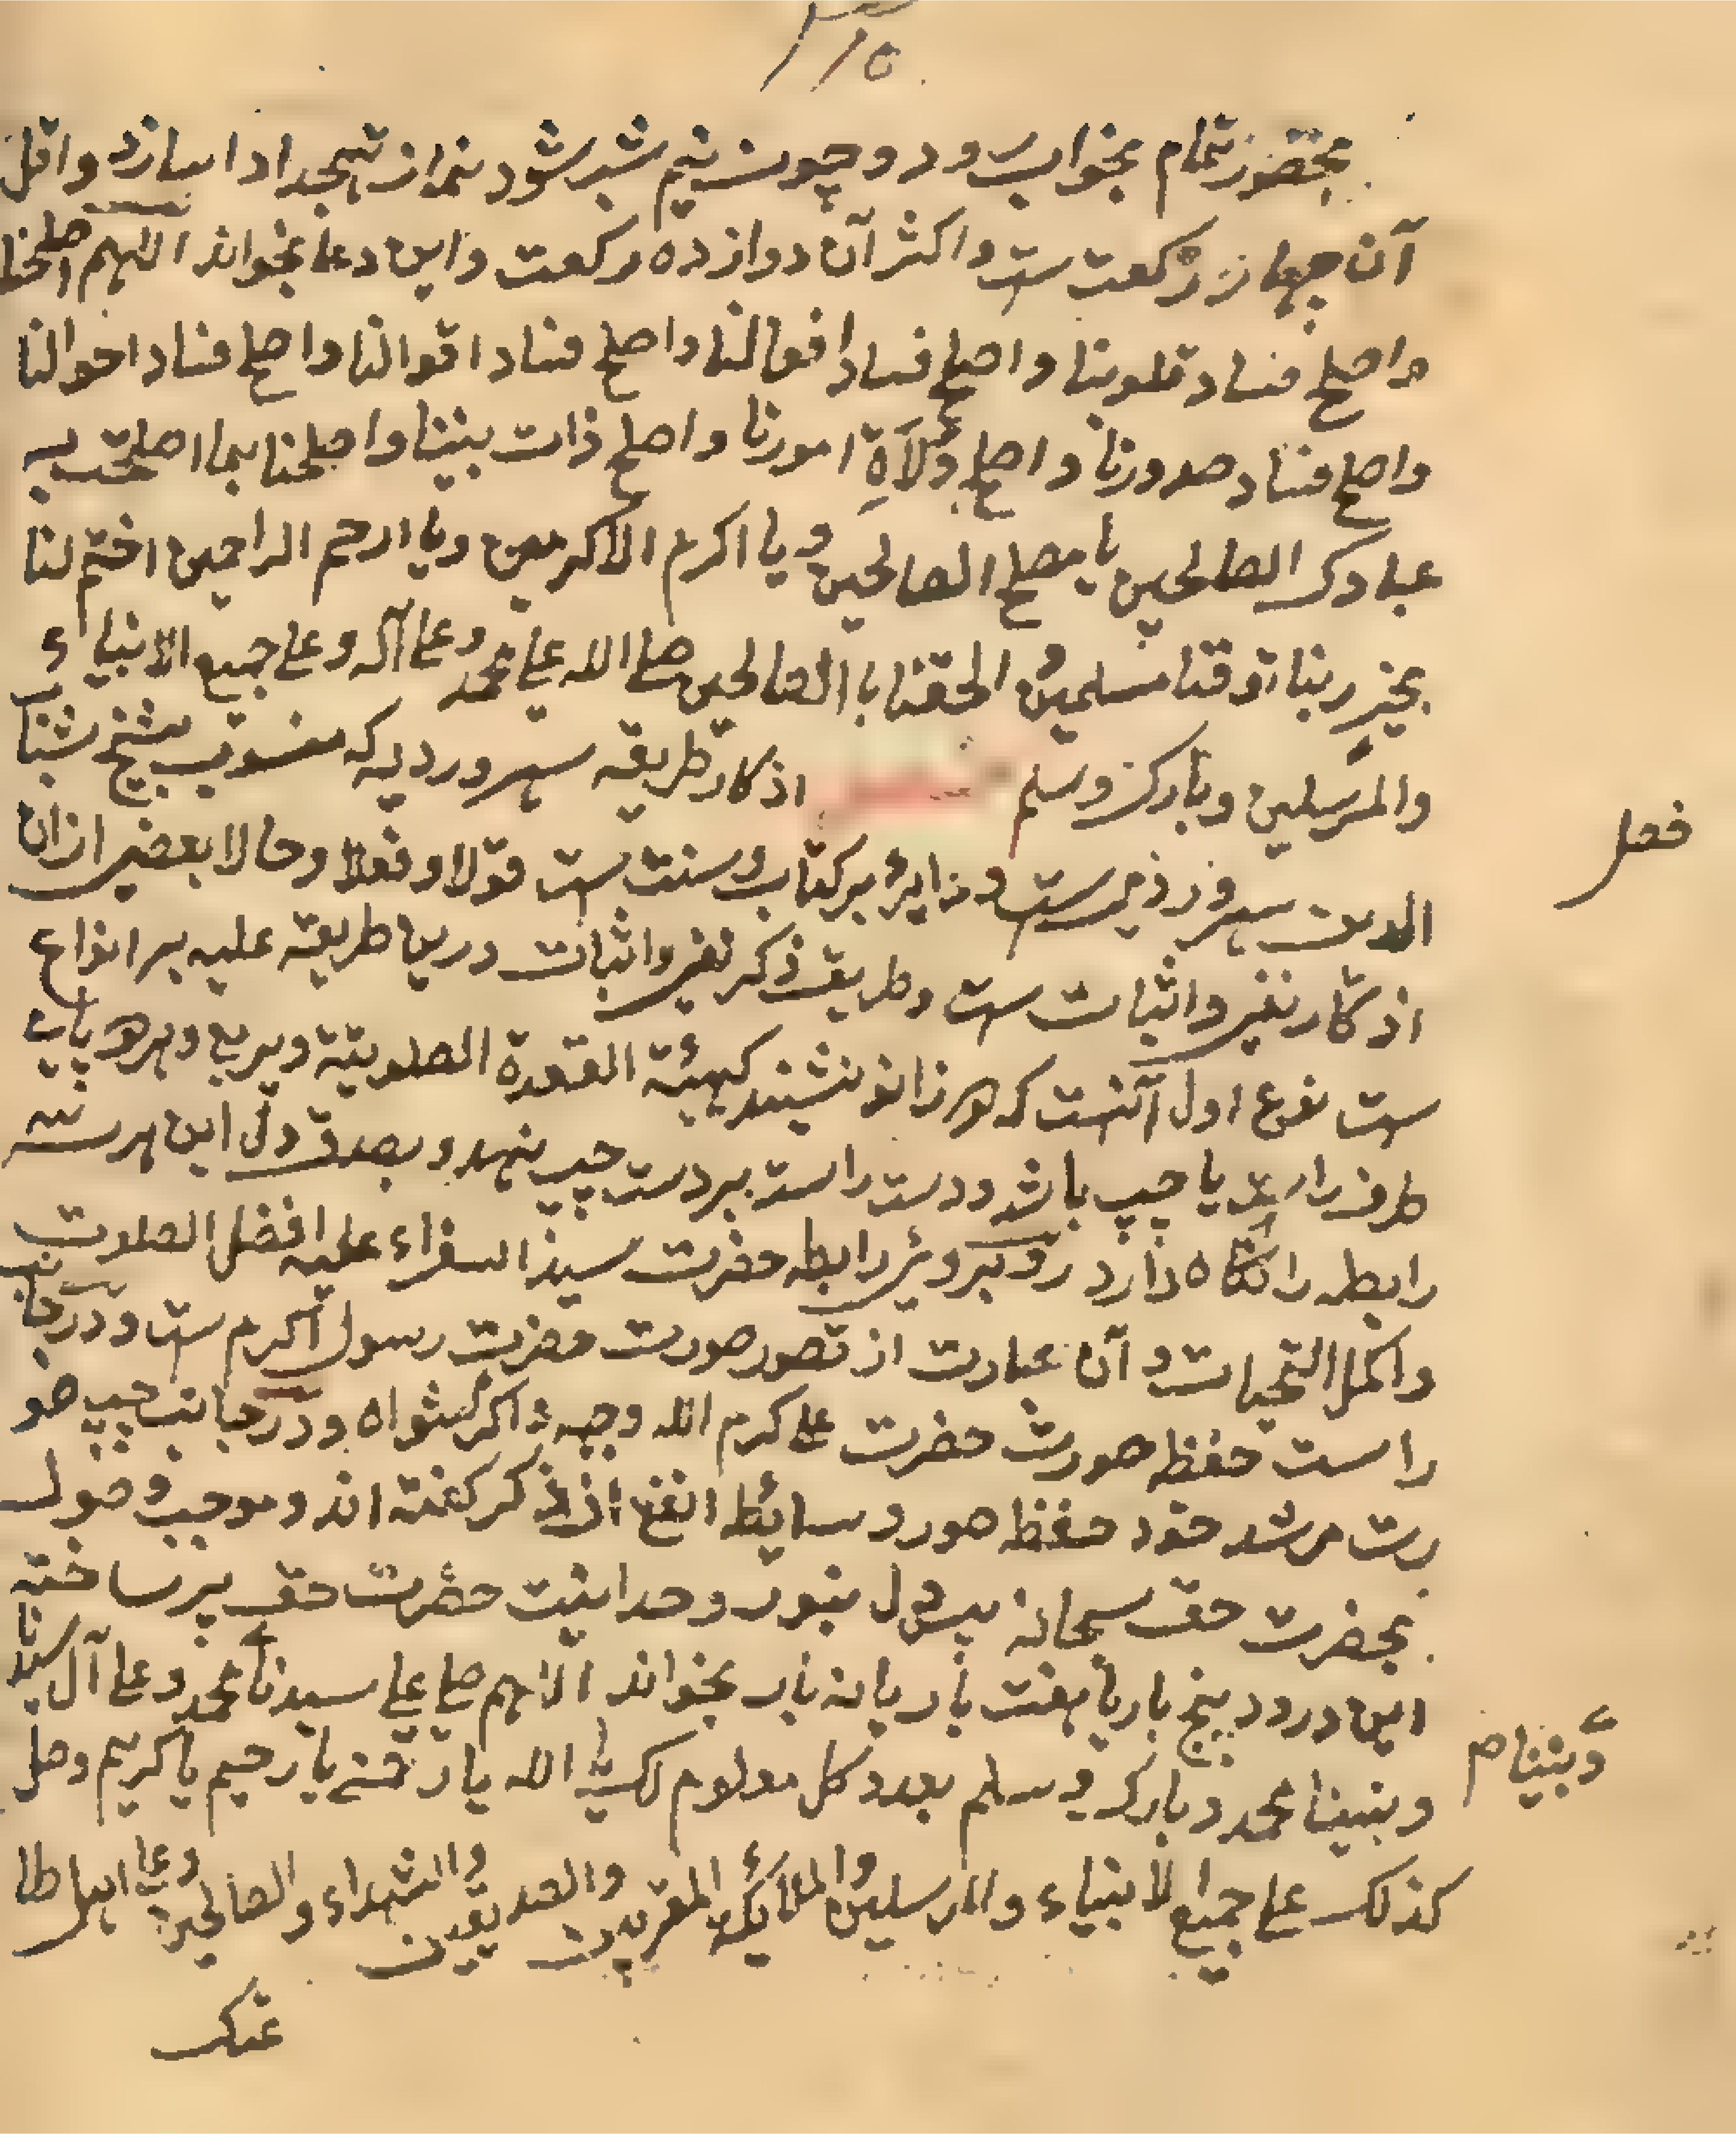 ۱۱۵
بحضور تمام بخواب رود و چون نیم شب شود نماز تهجد ادا سازد و اقل
آن چهار رکعت ست و اکثر آن دوازده رکعت و این دعا بخواند اللهم اصلحنا
واصلح فساد قلوبنا واصلح فساد افعالنا واصلح فساد اقوالنا واصلح فساد احوالنا
واصلح فساد صدورنا واصلح وُلَاةِ امورنا واصلح ذات بیننا واصلحنا بما اصلحت به
عبادک الصالحین یا مصلح الصالحین و یا اکرم الاکرمین و یا ارحم الراحمین اختم لنا
بخیر ربنا توفنا مسلمین و الحقنا با الصالحین صلی الله علی محمد و علی آله و علی جمیع الانبیاء
والمرسلین وبارک وسلم اذکار طریقه سهروردیه که منسوب بشیخ شهاب
فصل
الدین سهروردی ست و دایره بر کتاب و سنت ست قولا و فعلا و حالا بعضی ازان
اذکار نفی و اثبات ست و طریق ذکر نفی و اثبات درین طریقه علیه بر انواع
ست نوع اول آنست که هر زانو نشیند کهیئة القعدة الصلوتیة و مربع و بر هر پای
طرف راست یا چپ باشد و دست راست بر دست چپ نهد و بصدق دل این هر سه
رابطه را نگاه دارد روبروئ رابطه حضرت سید السفراء علیه افضل الصلوت
واکمل التحیات و آن عبارت از تصور صورت حضرت رسول اکرم ست و در جانب
راست حفظ صورت حضرت علی کرم الله وجهه و اکرم مثواه و در جانب چپ صو
رت مرشد خود حفظ صور وسائط انفع از ذکر گفته اند و موجب وصول
بحضرت حق سبحانه پس دل بنور وحدانیت حضرت حق پر ساخته
این درود پنج بار یا هفت بار یا نه بار بخواند اللهم صل علی سیدنا محمد و علی آل سیدنا
و نبینا محمد و بارک و سلم بعدد کل معلوم لک یا الله یا رحمن یا رحیم یا کریم وصل
و نبینا
کذلک علی جمیع الانبیاء والمرسلین والملائکة المقربین والصدیقین والشهداء والصالحین وعلی اهل طا
عتک